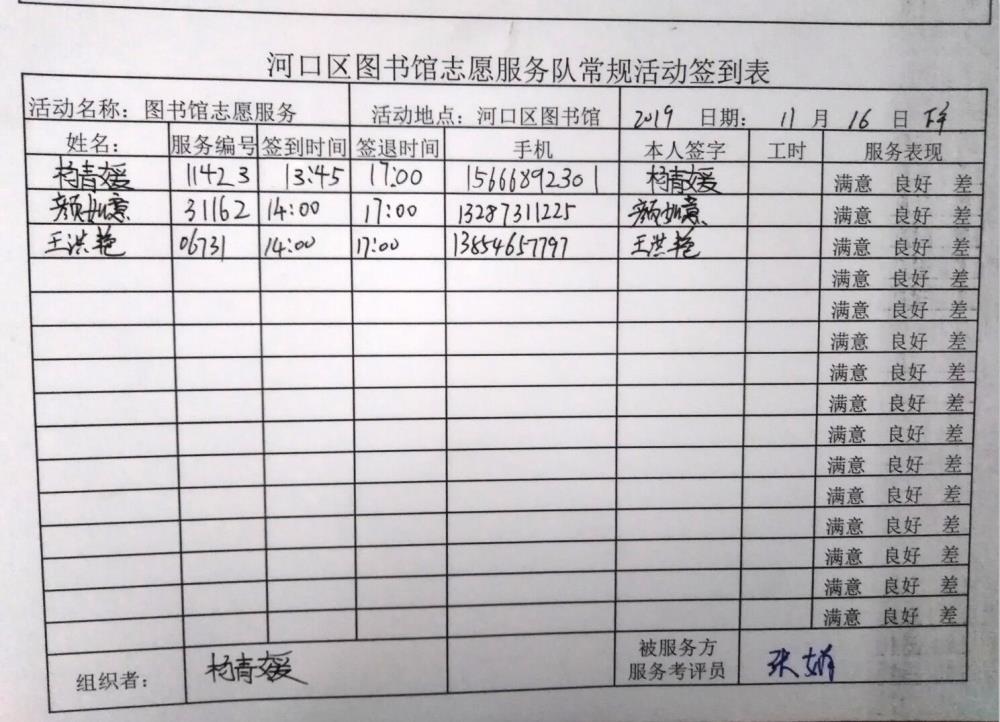 河口区图书馆志愿服务队常规活动签到表
活动名称：图书馆志愿服务 活动地点：河口区图书馆 2019 日期： 11 月 16 日 下午
姓名： 服务编号 签到时间 签退时间 手机 本人签字 工时 服务表现
杨青媛 11423 13:45 17:00 15666892301 杨青媛 满意 良好 差
颜如意 31162 14:00 17:00 13287311225 颜如意 满意 良好 差
王洪艳 06731 14:00 17:00 13854657797 王洪艳 满意 良好 差
满意 良好 差
满意 良好 差
满意 良好 差
满意 良好 差
满意 良好 差
满意 良好 差
满意 良好 差
满意 良好 差
满意 良好 差
满意 良好 差
满意 良好 差
满意 良好 差
组织者： 杨青媛 被服务方
服务考评员 张娟